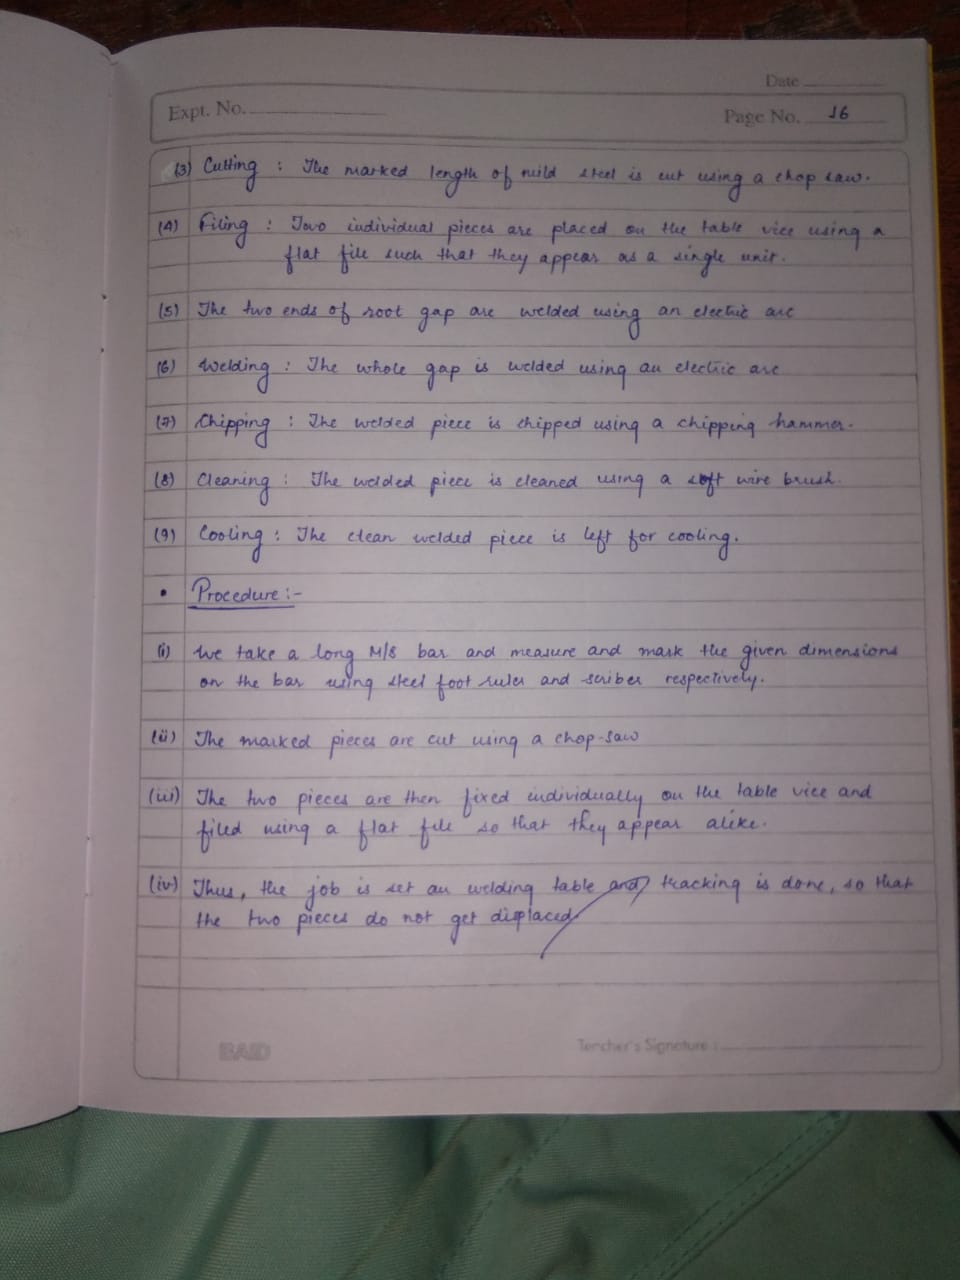 Date
Expt. No.
Page No. 16
(3) Cutting : The marked length of mild steel is cut using a chop saw.
(4) Filing : Two individual pieces are placed on the table vice using a
flat file such that they appear as a single unit.
(5) The two ends of root gap are welded using an electric arc
(6) Welding : The whole gap is welded using an electric arc
(7) Chipping : The welded piece is chipped using a chipping hammer.
(8) Cleaning : The welded piece is cleaned using a soft wire brush.
(9) Cooling : The clean welded piece is left for cooling.
• Procedure :-
(i) We take a long M/S bar and measure and mark the given dimensions
on the bar using steel foot ruler and scriber respectively.
(ii) The marked pieces are cut using a chop-saw
(iii) The two pieces are then fixed individually on the table vice and
filed using a flat file so that they appear alike.
(iv) Thus, the job is set on welding table and tracking is done, so that
the two pieces do not get displaced.
BAID
Teacher's Signature :